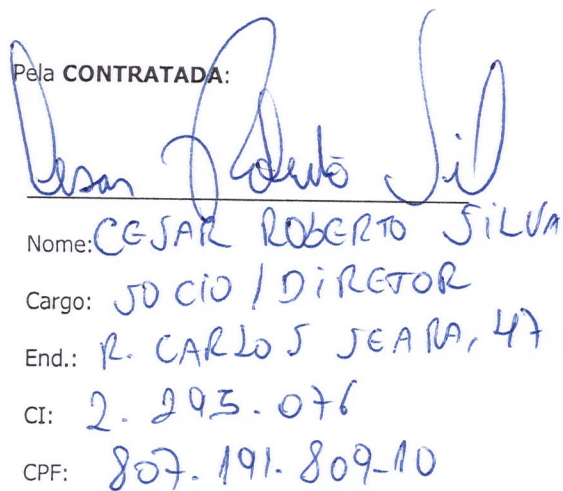 Pela CONTRATADA:
Cesar Roberto Sil
Nome: CESAR ROBERTO SILVA
Cargo: SOCIO / DIRETOR
End.: R. CARLOS SEARA, 47
CI: 2. 295. 076
CPF: 807. 191. 809-10